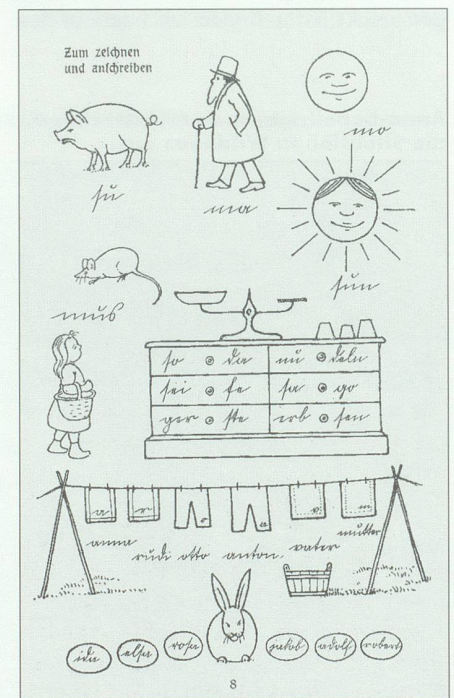 Zum zeichnen
und anschreiben
su
ma
mo
sun
mus
so da nu deln
sei fe sa go
ger ste erb sen
a r o a v m
anna rudi otto anton vater mutter
ida elsa rosa jakob adolf robert
8